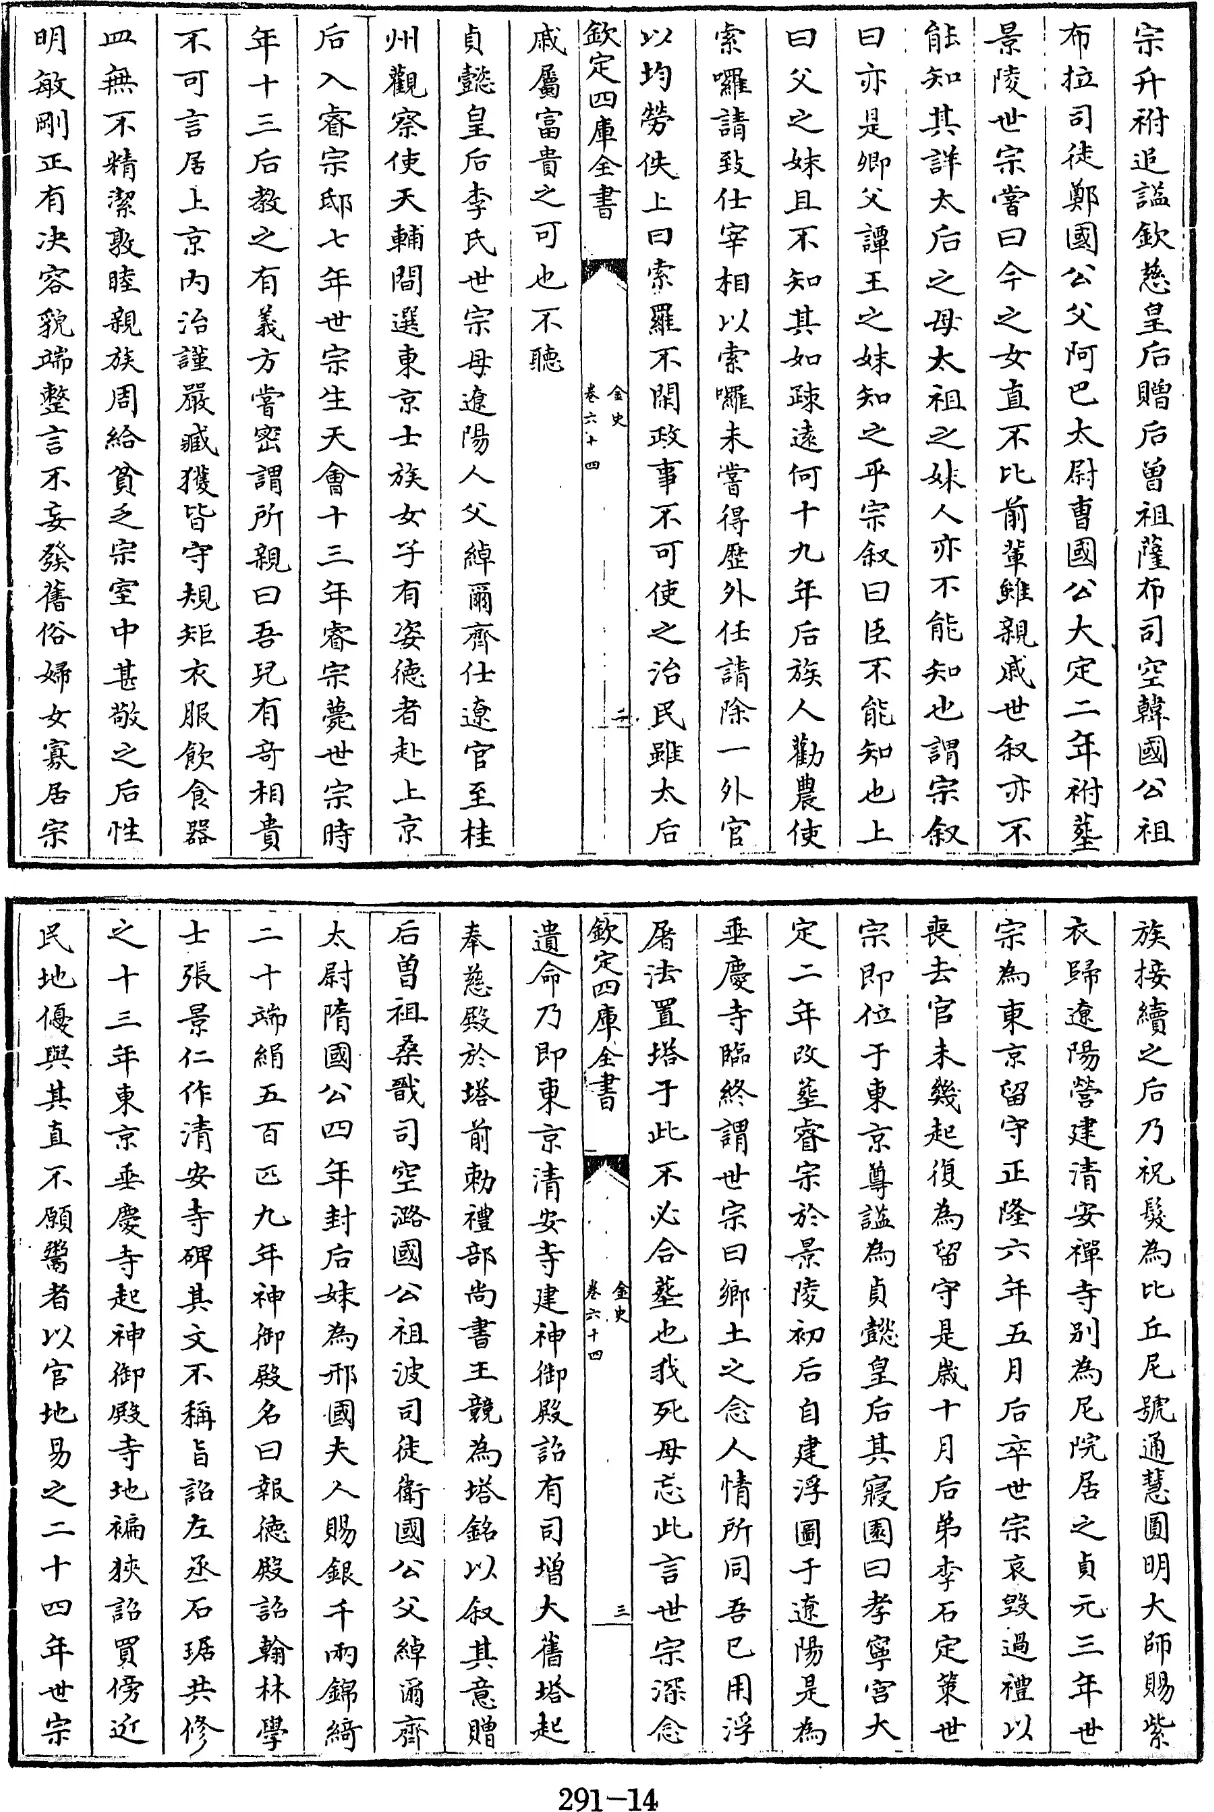 宗升祔追諡欽慈皇后贈后曾祖薩布司空韓國公祖
布拉司徒鄭國公父阿巴太尉曹國公大定二年祔塟
景陵世宗嘗曰今之女直不比前輩雖親戚世叙亦不
能知其詳太后之母太祖之妹人亦不能知也謂宗叙
曰亦是卿父譚王之妹知之乎宗叙曰臣不能知也上
曰父之妹且不知其如疎遠何十九年后族人勸農使
索囉請致仕宰相以索囉未嘗得歴外任請除一外官
以均勞佚上曰索羅不閑政事不可使之治民雖太后
欽定四庫全書
金史
卷六十四
二
戚屬富貴之可也不聽
貞懿皇后李氏世宗母遼陽人父綽爾齊仕遼官至桂
州觀察使天輔間選東京士族女子有姿德者赴上京
后入睿宗邸七年世宗生天會十三年睿宗薨世宗時
年十三后教之有義方嘗密謂所親曰吾兒有奇相貴
不可言居上京内治謹嚴臧獲皆守規矩衣服飲食器
皿無不精潔敦睦親族周給貧乏宗室中甚敬之后性
明敏剛正有决容貌端整言不妄發舊俗婦女寡居宗
族接續之后乃祝髮為比丘尼號通慧圓明大師賜紫
衣歸遼陽營建清安禪寺别為尼院居之貞元三年世
宗為東京留守正隆六年五月后卒世宗哀毁過禮以
喪去官未幾起復為留守是歲十月后弟李石定策世
宗即位于東京尊諡為貞懿皇后其寢園曰孝寧宫大
定二年改塟睿宗於景陵初后自建浮圖于遼陽是為
垂慶寺臨終謂世宗曰鄉土之念人情所同吾已用浮
屠法置塔于此不必合塟也我死毋忘此言世宗深念
欽定四庫全書
金史
卷六十四
三
遺命乃即東京清安寺建神御殿詔有司增大舊塔起
奉慈殿於塔前勅禮部尚書王競為塔銘以叙其意贈
后曾祖桑戬司空潞國公祖波司徒衛國公父綽爾齊
太尉隋國公四年封后妹為邢國夫人賜銀千兩錦綺
二十端絹五百匹九年神御殿名曰報德殿詔翰林學
士張景仁作清安寺碑其文不稱旨詔左丞石琚共修
之十三年東京垂慶寺起神御殿寺地褊狹詔買傍近
民地優與其直不願鬻者以官地易之二十四年世宗
291-14